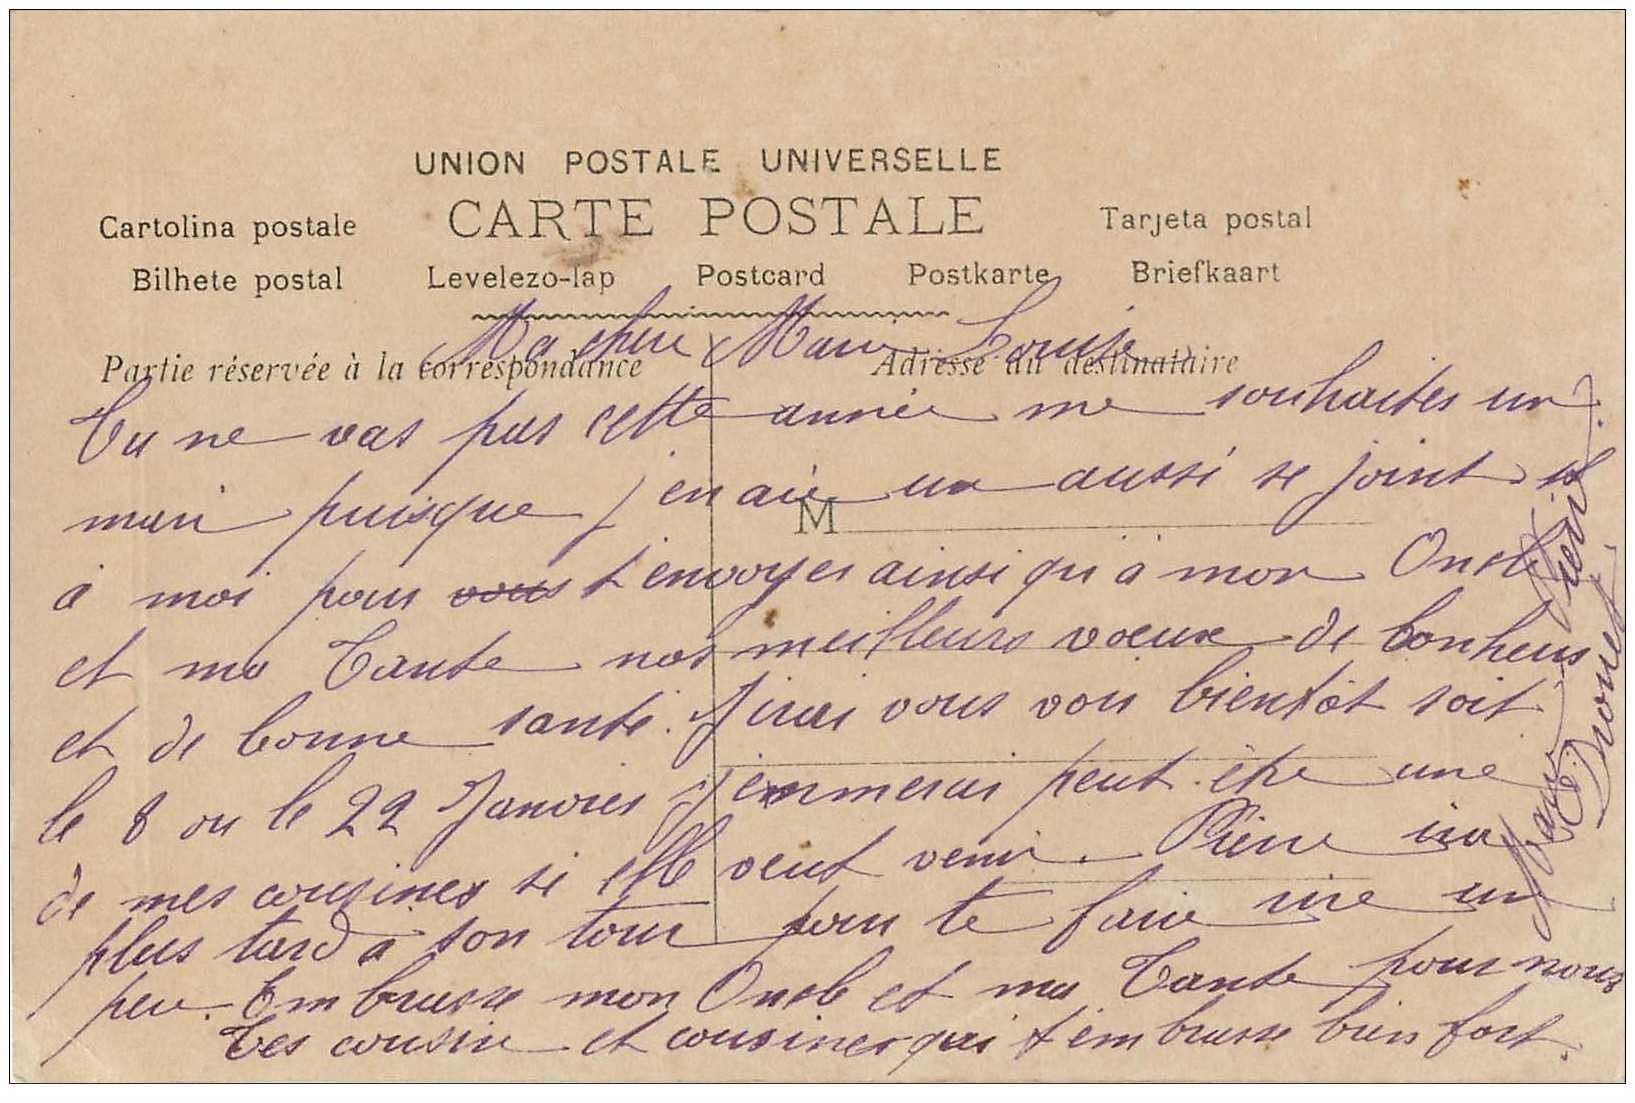 UNION POSTALE UNIVERSELLE
Cartolina postale CARTE POSTALE Tarjeta postal
Bilhete postal Levelezo-lap Postcard Postkarte Briefkaart
Partie réservée à la correspondance Adresse du destinataire
M
Ma chère Marie Louise
Tu ne vas pas cette année me souhaiter un
mari puisque j'en aie un aussi se joint il
à moi pour vous t'envoyer ainsi qu'à mon Oncle
et ma Tante nos meilleurs voeux de bonheur
et de bonne santé. J'irai vous voir bientôt soit
le 8 ou le 22 Janvier j'emmerai peut être une
de mes cousines si elle veut venir. Pierre ira
plus tard à son tour pour te faire rire un
peu. Embrasse mon Oncle et ma Tante pour nous
Tes cousin et cousines qui t'embrasse bien fort.
Marie Pierre